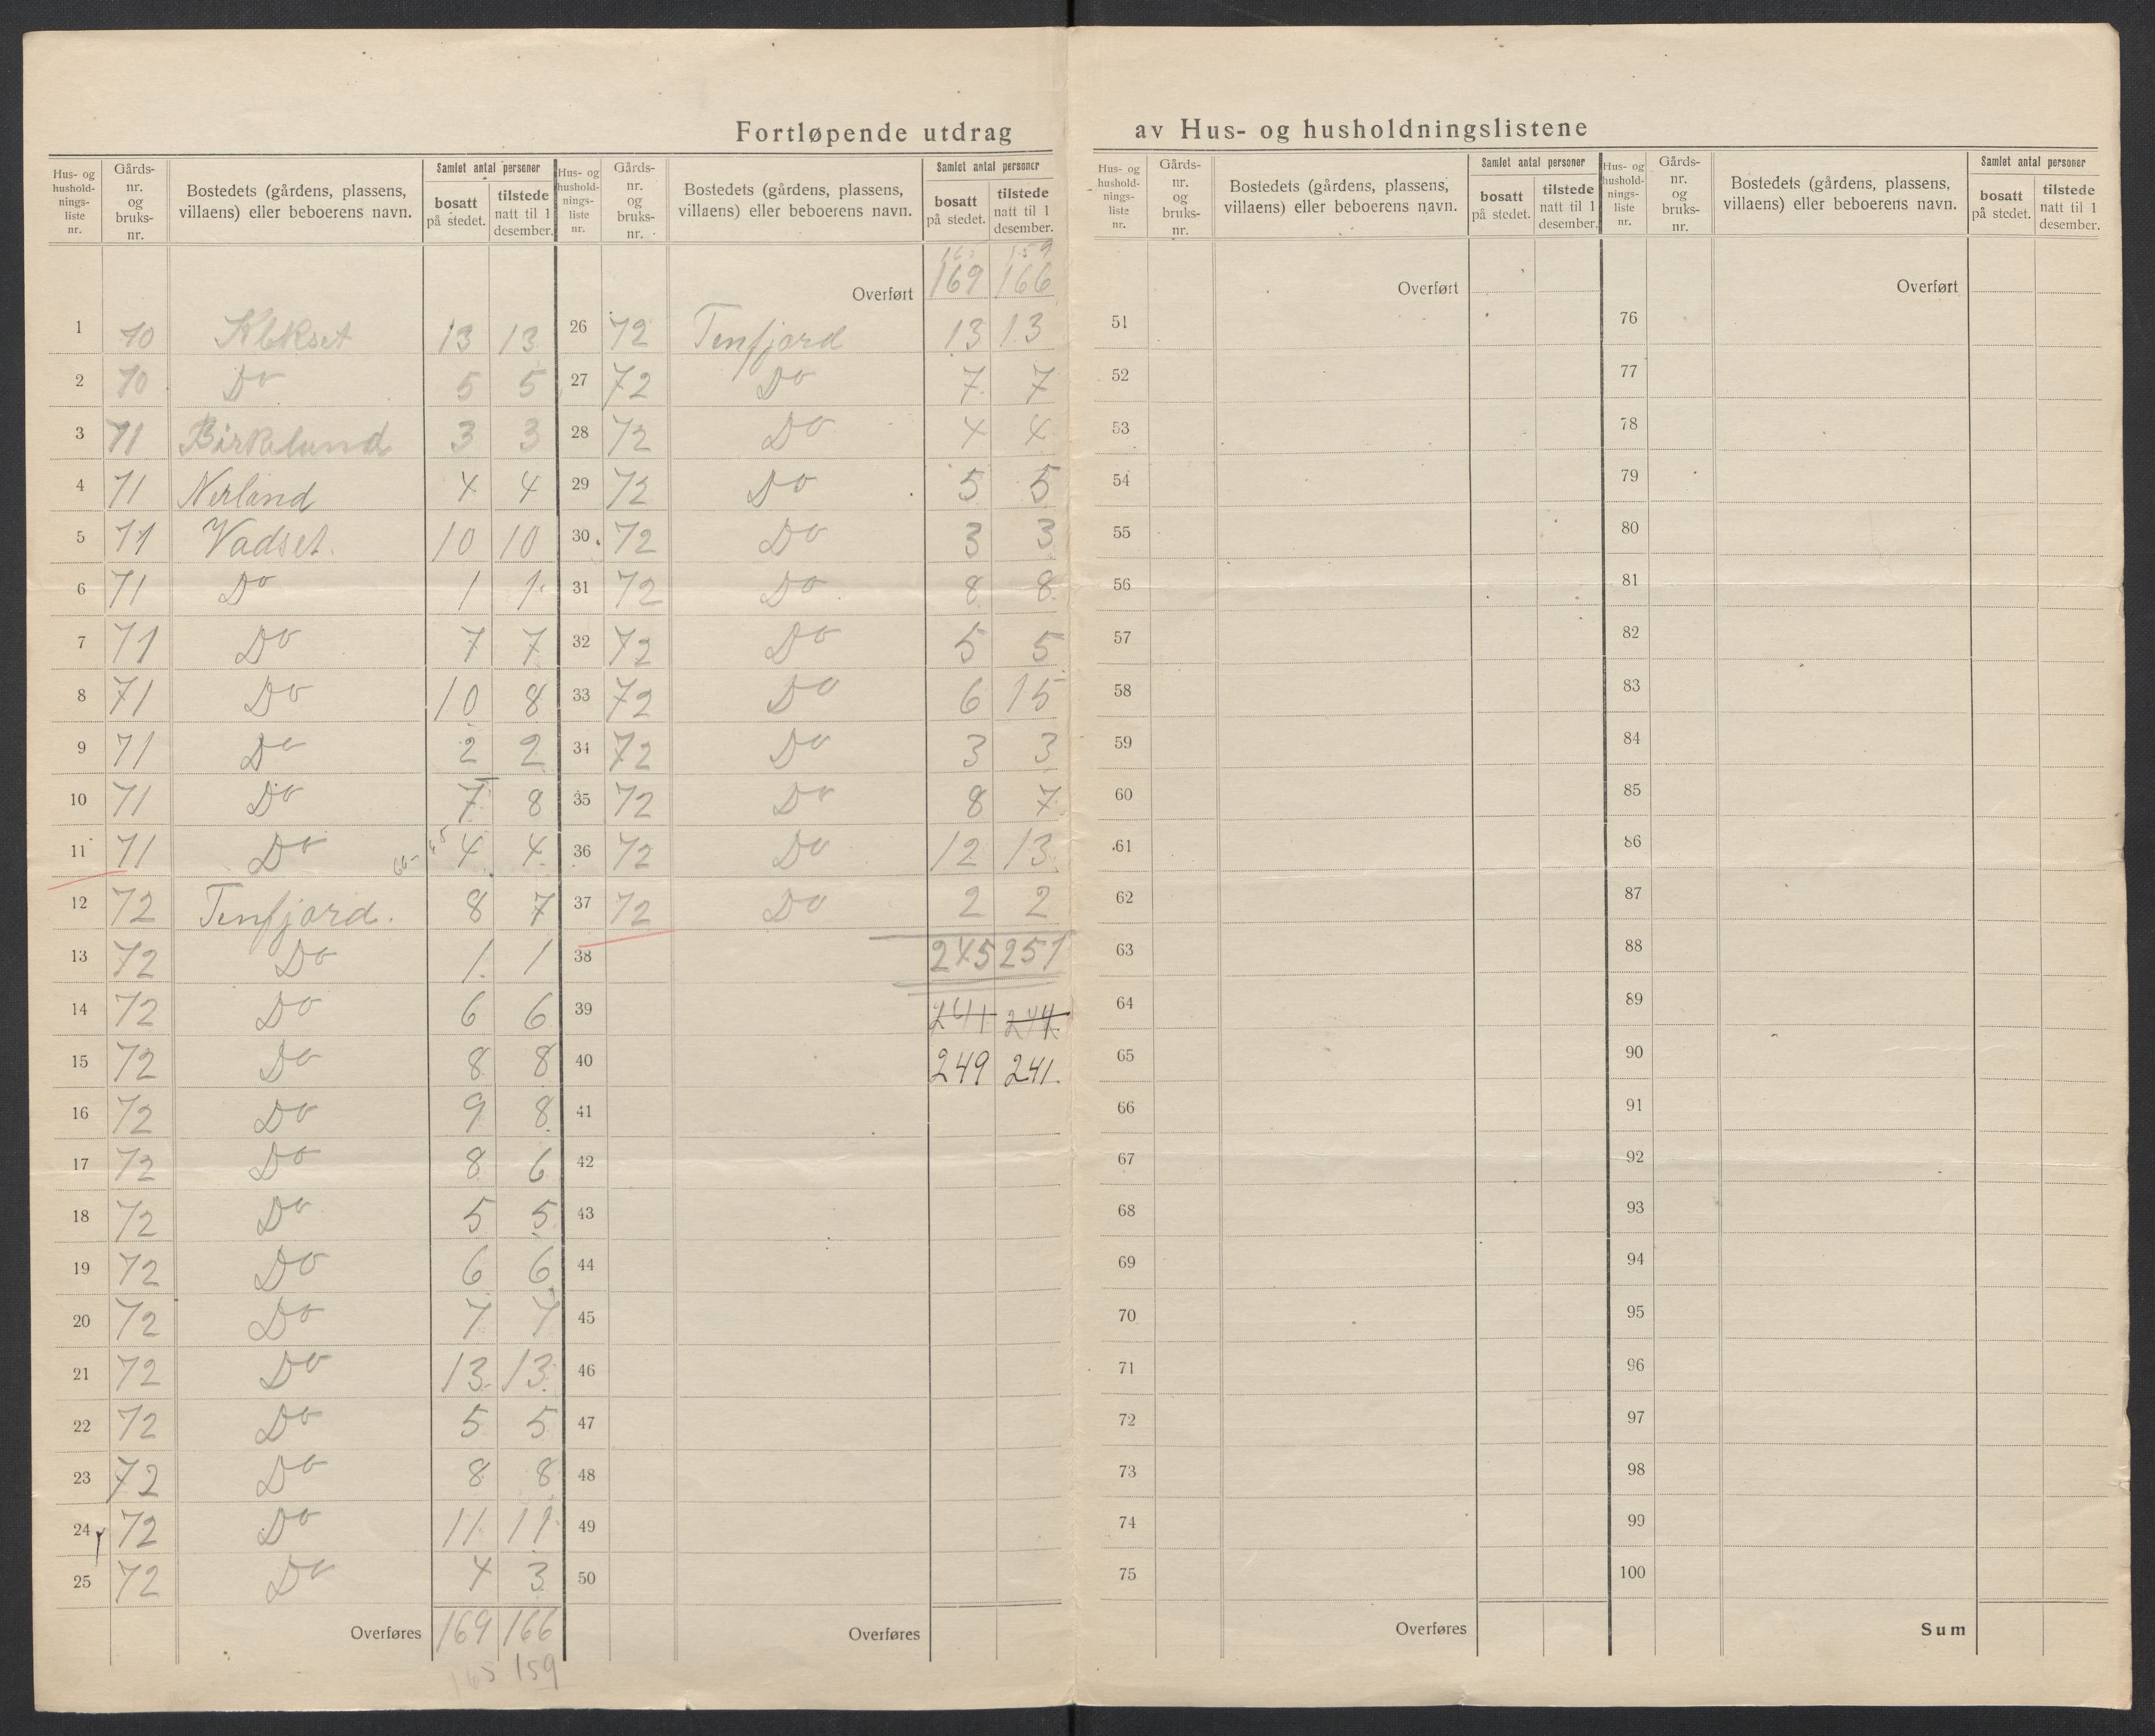 Fortløpende utdrag av Hus- og husholdningslistene
Hus- og hushold-nings-liste nr. | Gårds-nr. og bruks-nr. | Bostedets (gårdens, plassens, villaens) eller beboerens navn. | Samlet antal personer | bosatt på stedet. | tilstede natt til 1 desember.
1 70 13 13
2 70 Do 5 5
3 71 Birkelund 3 3
4 71 Nerland 4 4
5 71 Vadset. 10 10
6 71 Do 1 1
7 71 Do 7 7
8 71 Do 10 8
9 71 Do 2 2
10 71 Do 7 8
11 71 Do 4 4
12 72 Tenfjord. 8 7
13 72 Do 1 1
14 72 Do 6 6
15 72 Do 8 8
16 72 Do 9 8
17 72 Do 8 6
18 72 Do 5 5
19 72 Do 6 6
20 72 Do 7 7
21 72 Do 13 13
22 72 Do 5 5
23 72 Do 8 8
24 72 Do 11 11
25 72 Do 4 3
Overføres 169 166
165 159
Hus- og hushold-nings-liste nr. | Gårds-nr. og bruks-nr. | Bostedets (gårdens, plassens, villaens) eller beboerens navn. | Samlet antal personer | bosatt på stedet. | tilstede natt til 1 desember.
165 159
Overført 169 166
26 72 Tenfjord 13 13
27 72 Do 7 7
28 72 Do 4 4
29 72 Do 5 5
30 72 Do 3 3
31 72 Do 8 8
32 72 Do 5 5
33 72 Do 6 15
34 72 Do 3 3
35 72 Do 8 7
36 72 Do 12 13
37 72 Do 2 2
38 245 251
39 241 244
40 249 241.
41
42
43
44
45
46
47
48
49
50
Overføres
Hus- og hushold-nings-liste nr. | Gårds-nr. og bruks-nr. | Bostedets (gårdens, plassens, villaens) eller beboerens navn. | Samlet antal personer | bosatt på stedet. | tilstede natt til 1 desember.
Overført
51
52
53
54
55
56
57
58
59
60
61
62
63
64
65
66
67
68
69
70
71
72
73
74
75
Overføres
Hus- og hushold-nings-liste nr. | Gårds-nr. og bruks-nr. | Bostedets (gårdens, plassens, villaens) eller beboerens navn. | Samlet antal personer | bosatt på stedet. | tilstede natt til 1 desember.
Overført
76
77
78
79
80
81
82
83
84
85
86
87
88
89
90
91
92
93
94
95
96
97
98
99
100
Sum